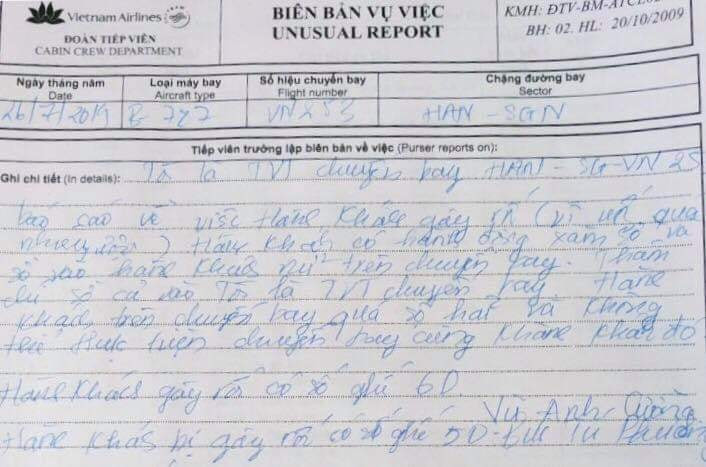 Vietnam Airlines
ĐOÀN TIẾP VIÊN
CABIN CREW DEPARTMENT
BIÊN BẢN VỤ VIỆC
UNUSUAL REPORT
KMH: ĐTV-BM-ATCL
BH: 02. HL: 20/10/2009
Ngày tháng năm
Date
Loại máy bay
Aircraft type
Số hiệu chuyến bay
Flight number
Chặng đường bay
Sector
26/7/2019 B 787 VN253 HAN - SGN
Tiếp viên trưởng lập biên bản về việc (Purser reports on):
Ghi chi tiết (In details): Tôi là TVT chuyến bay HAN - SG VN 25
báo cáo về việc Hành Khách gây rối (vì uống quá
nhiều rượu) Hành Khách có hành động xàm sỡ và
sờ vào hành khách nữ trên chuyến bay. Thậm
chí sờ cả vào Tôi là TVT chuyến bay. Hành
Khách trên chuyến bay quá sợ hãi và không
thể thực hiện chuyến bay cùng hành khách đó
Hành Khách gây rối có số ghế 6D
Vũ Anh Cường
Hành Khách bị gây rối có số ghế 5D